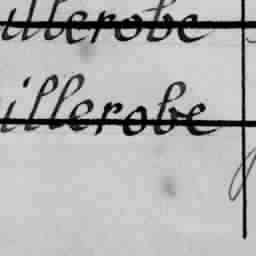 illerobe
illerobe